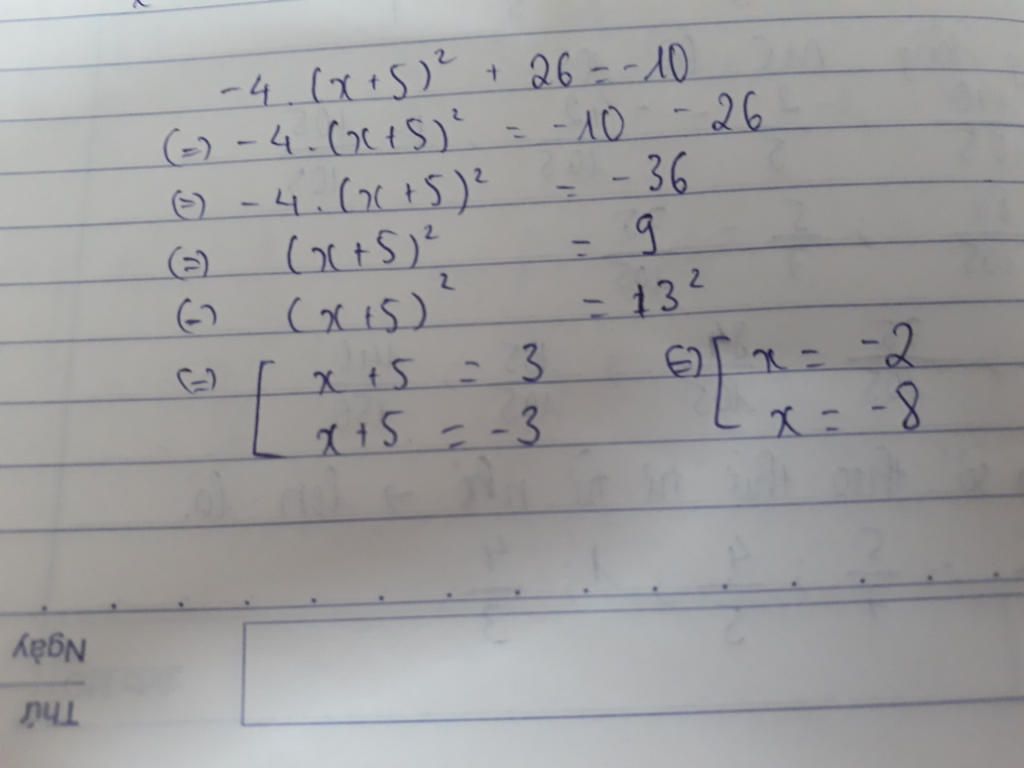 -4.(x+5)² + 26 = -10
(=) -4.(x+5)² = -10 - 26
(=) -4.(x+5)² = -36
(=) (x+5)² = 9
(-) (x+5)² = 13²
(=) [ x+5 = 3 (=) [ x = -2
x+5 = -3 x = -8
Ngày
Thứ